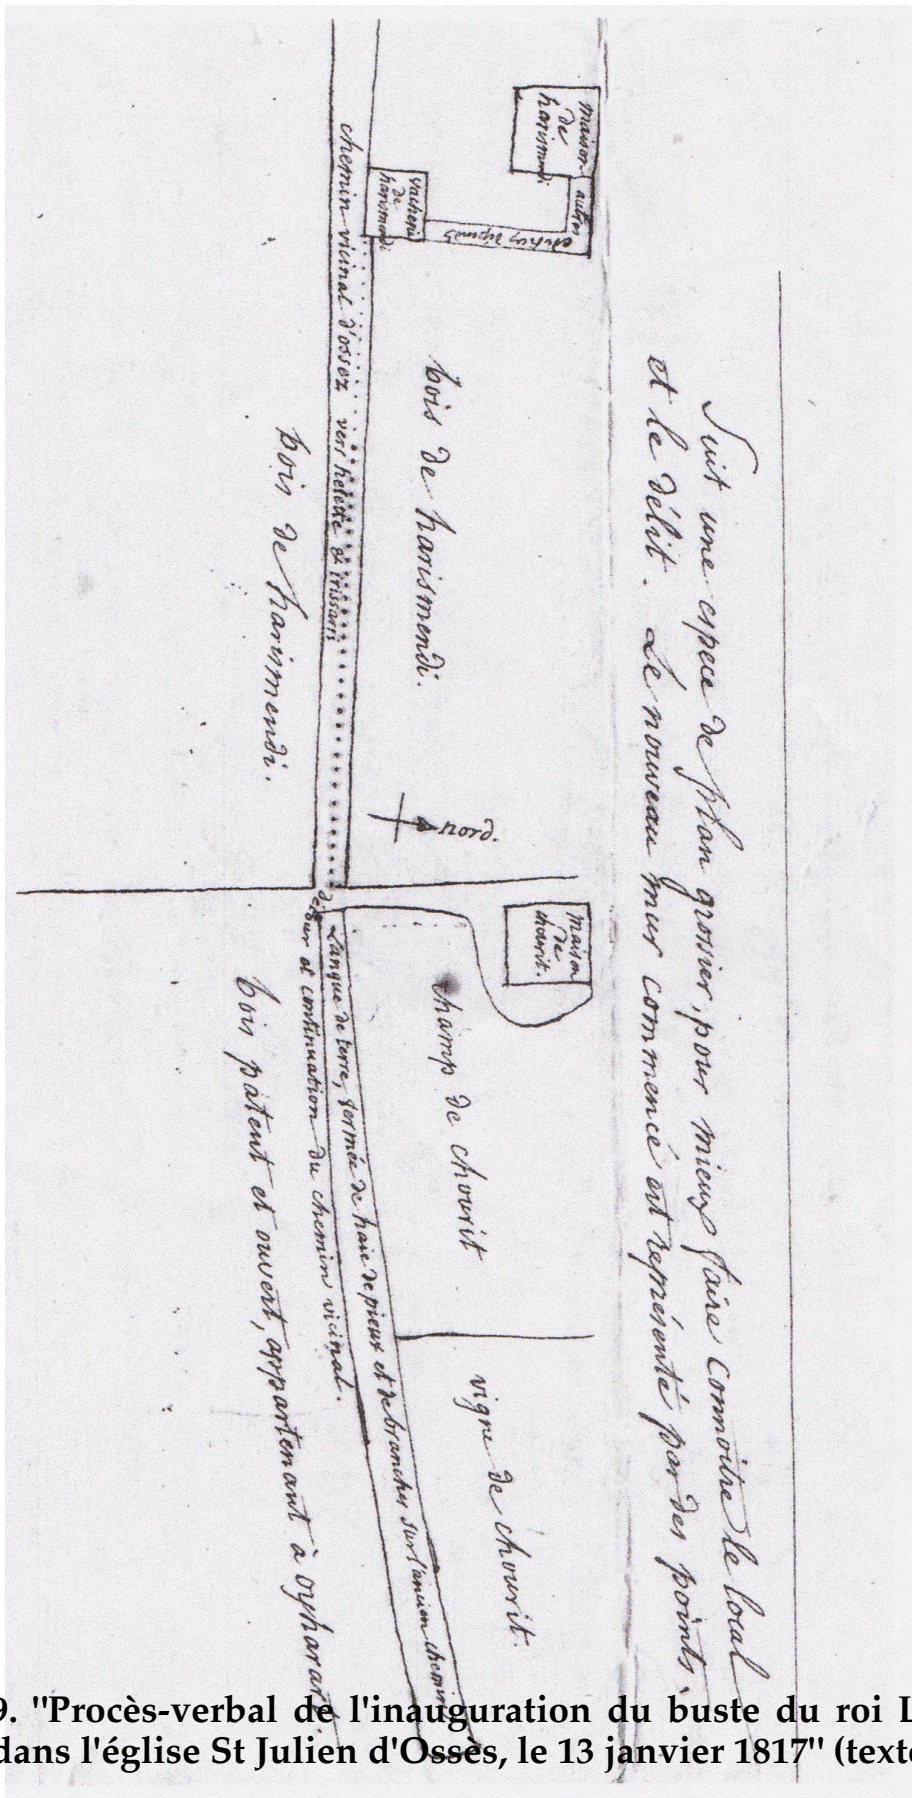 Suit une espece de plan grossier, pour mieux faire connoitre le local
et le délit. Le nouveau mur commencé est représenté par des points.
maison
de
harismendi
autres
vacherie
de
harismendi
chemin vicinal d'ossez vers helette et irissarri
bois de harismendi.
bois de harismendi.
nord.
maison
de
chourit.
champ de chourit
vigne de chourit.
Langue de terre, fermée de haie de pieux et de branches sur l'ancien chemin
et continuation du chemin vicinal.
bois patent et ouvert, appartenant à
9. "Procès-verbal de l'inauguration du buste du roi L
dans l'église St Julien d'Ossès, le 13 janvier 1817" (texte